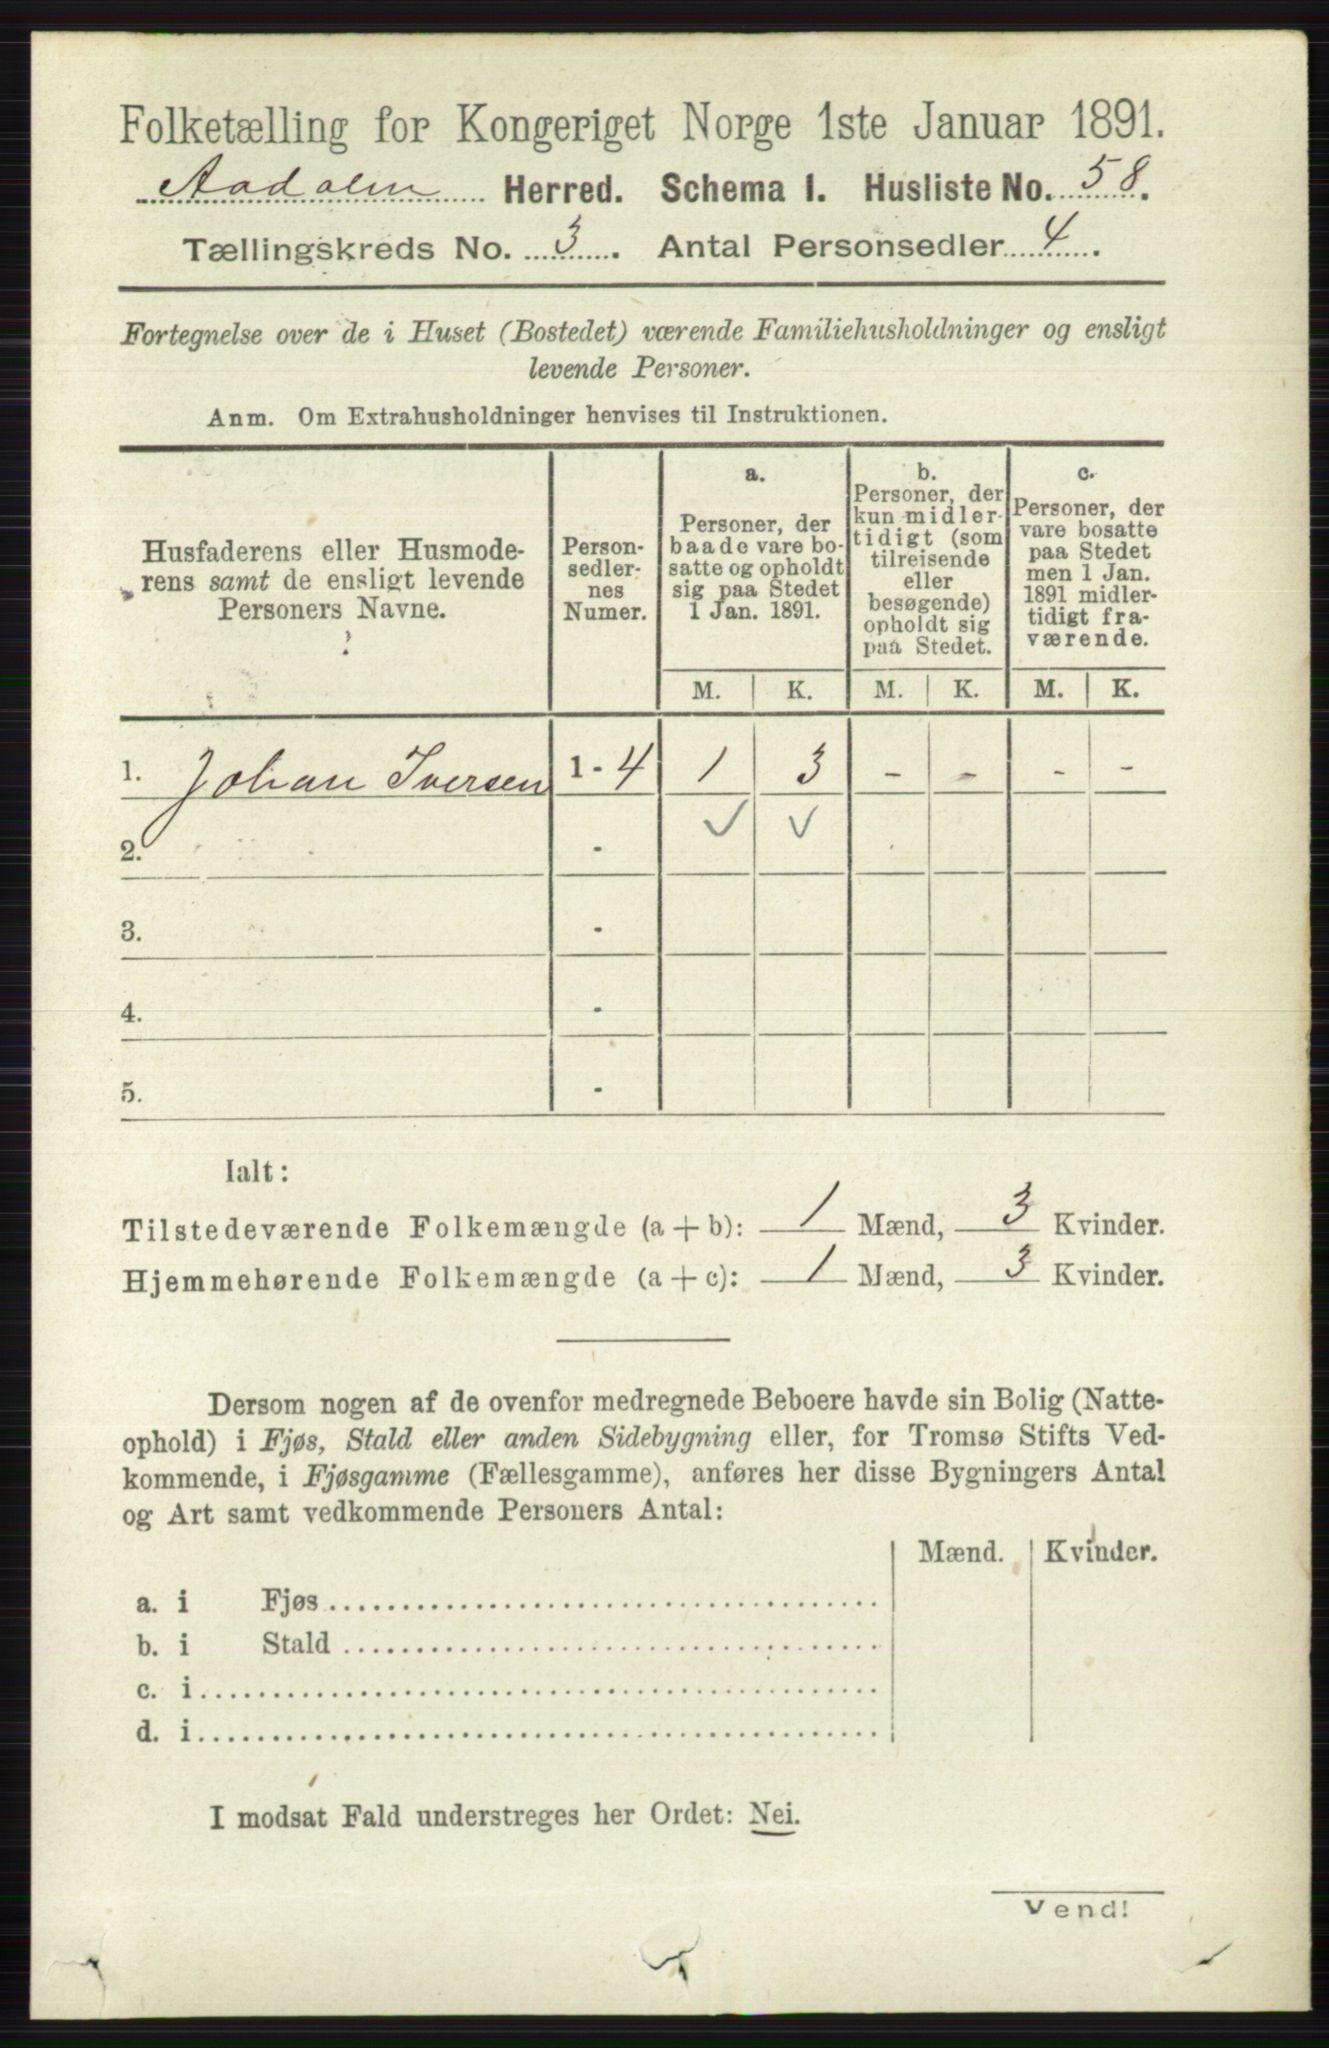 Folketælling for Kongeriget Norge 1ste Januar 1891.
Aadalen Herred. Schema 1. Husliste No. 58.
Tællingskreds No. 3. Antal Personsedler 4.
Fortegnelse over de i Huset (Bostedet) værende Familiehusholdninger og ensligt
levende Personer.
Anm. Om Extrahusholdninger henvises til Instruktionen.
Husfaderens eller Husmode-
rens samt de ensligt levende
Personers Navne.
Person-
sedler-
nes
Numer.
a.
Personer, der
baade vare bo-
satte og opholdt
sig paa Stedet
1 Jan. 1891.
b.
Personer, der
kun midler-
tidigt (som
tilreisende
eller
besøgende)
opholdt sig
paa Stedet.
c.
Personer, der
vare bosatte
paa Stedet
men 1 Jan.
1891 midler-
tidigt fra-
værende.
M. K. M. K. M. K.
1. Johan Iversen 1 - 4 1 3 - - - -
✓ ✓
2. -
3. -
4. -
5. -
Ialt:
Tilstedeværende Folkemængde (a + b): 1 Mænd, 3 Kvinder.
Hjemmehørende Folkemængde (a + c): 1 Mænd, 3 Kvinder.
Dersom nogen af de ovenfor medregnede Beboere havde sin Bolig (Natte-
ophold) i Fjøs, Stald eller anden Sidebygning eller, for Tromsø Stifts Ved-
kommende, i Fjøsgamme (Fællesgamme), anføres her disse Bygningers Antal
og Art samt vedkommende Personers Antal:
Mænd. Kvinder.
a. i Fjøs
b. i Stald
c. i
d. i
I modsat Fald understreges her Ordet: Nei.
Vend!